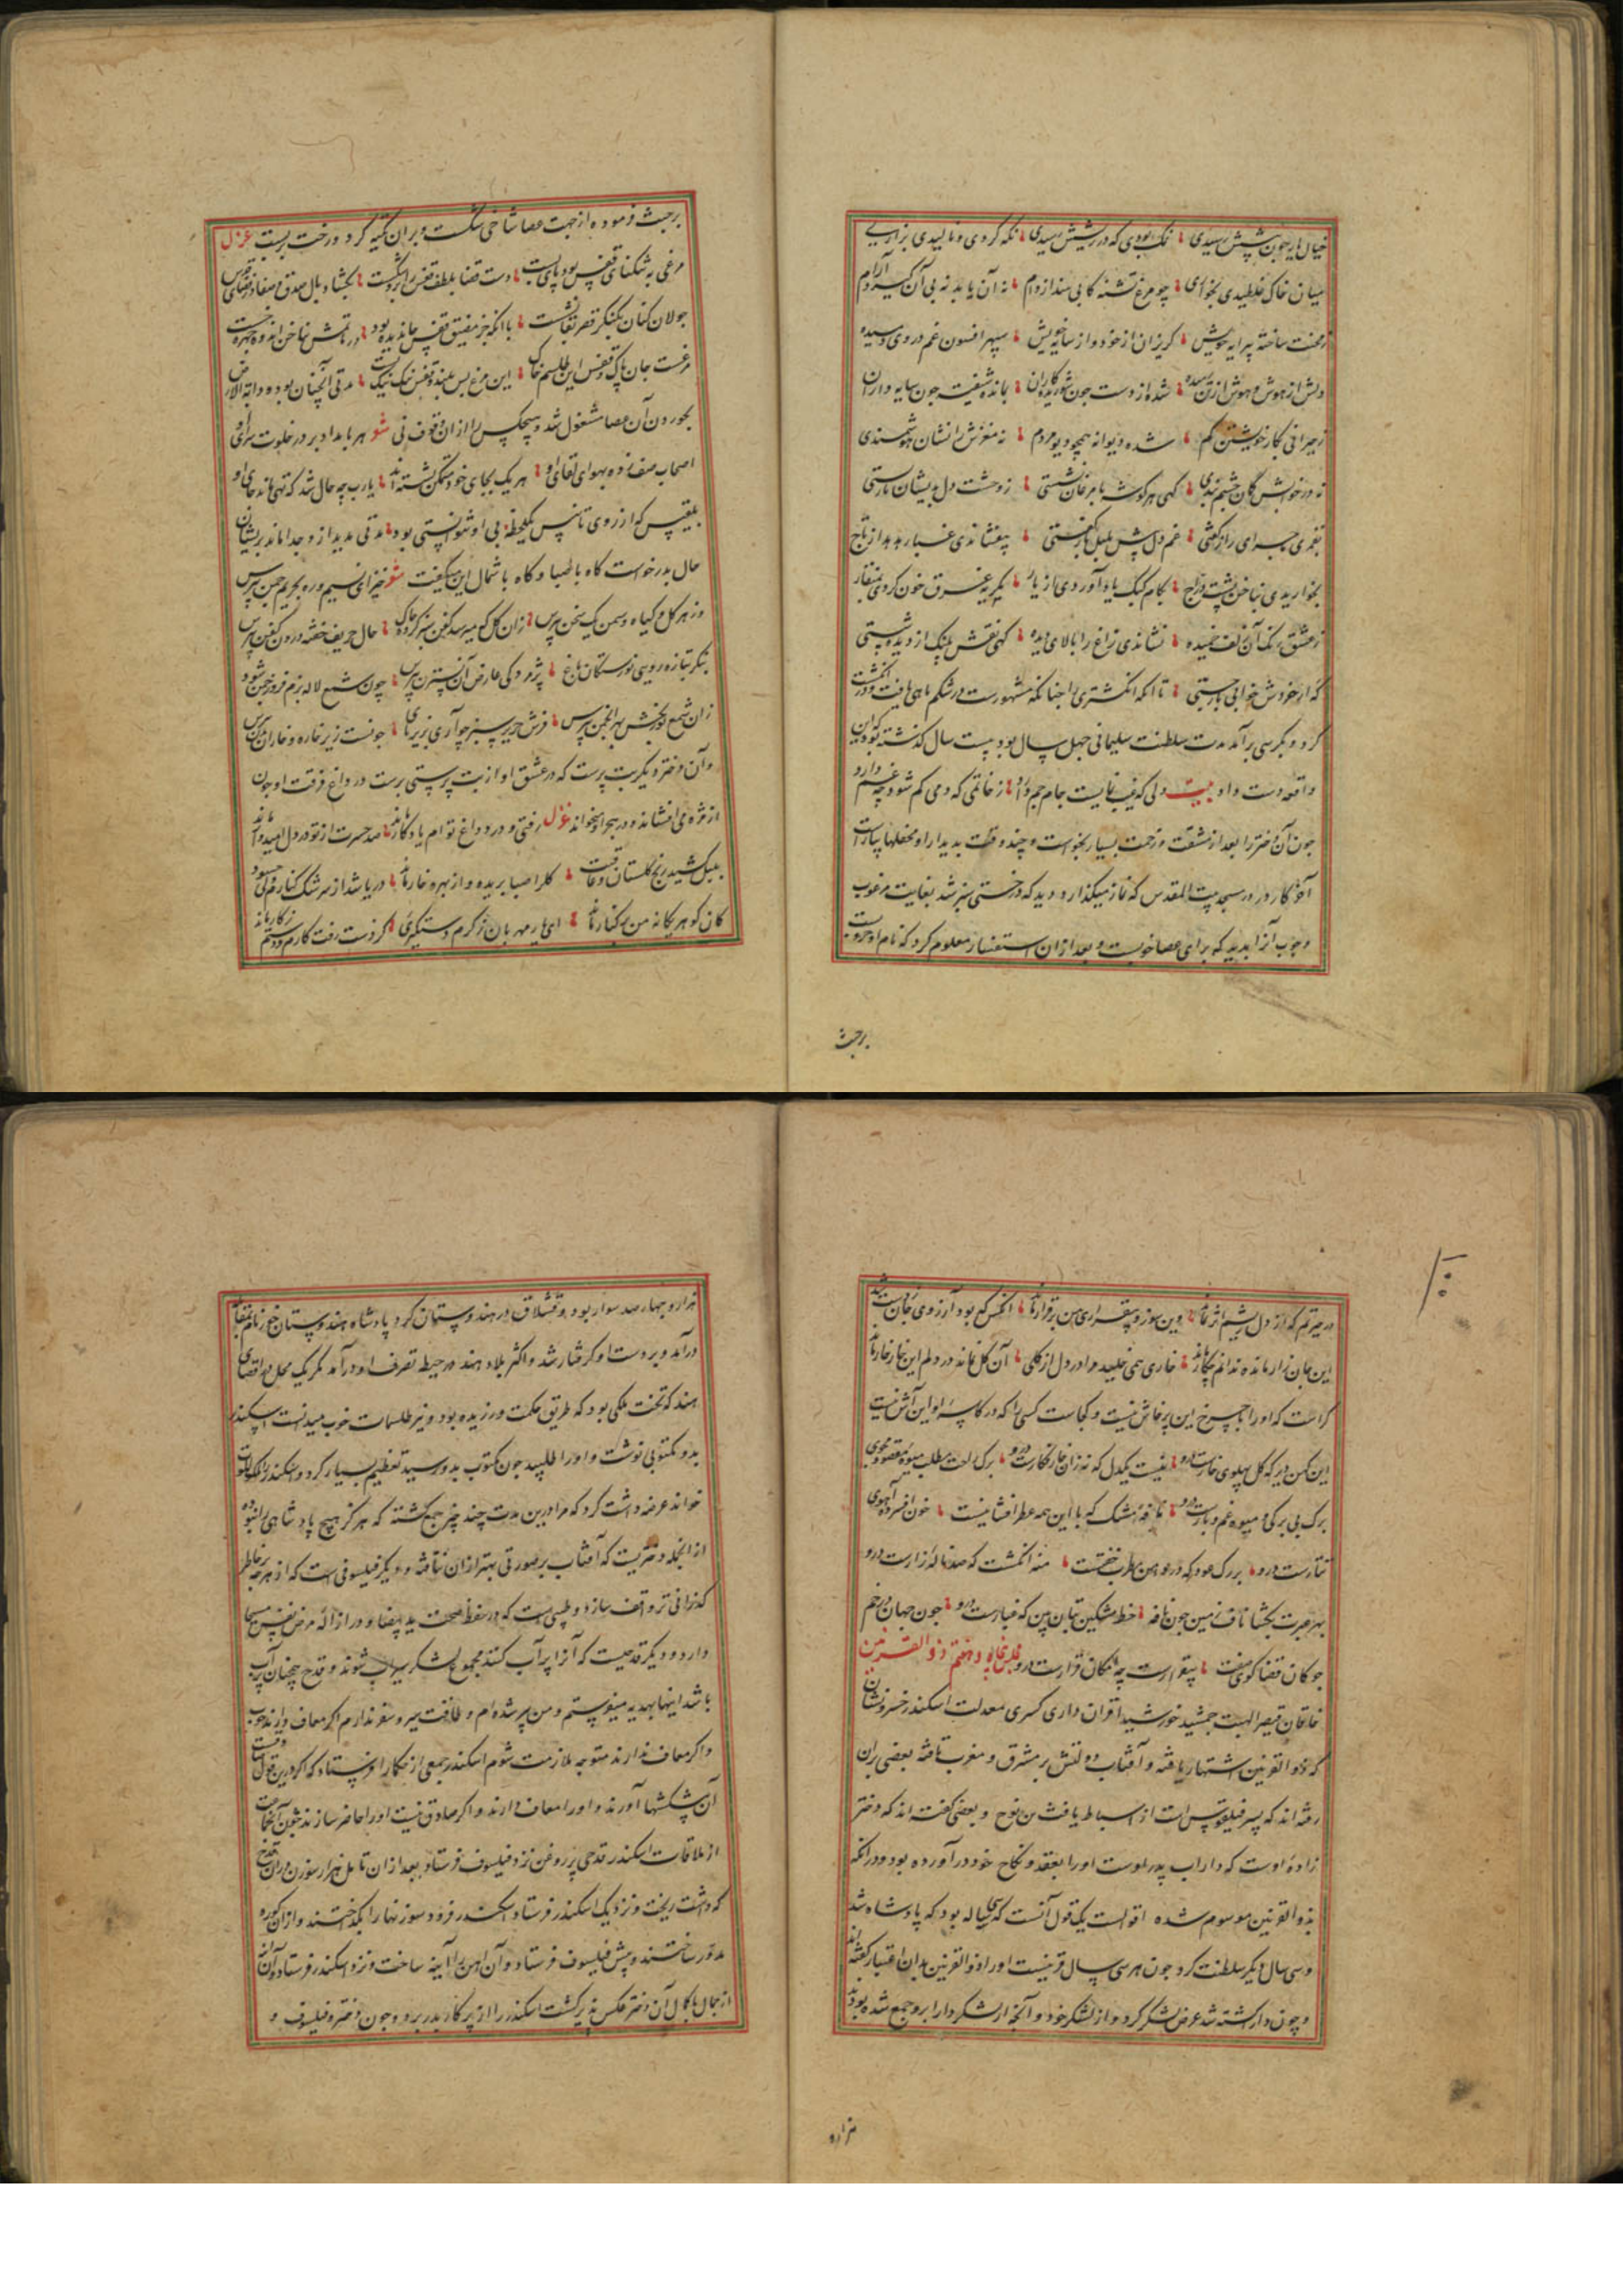 خیال یار چون پیشش رسیدی نمک بودی که در ریشش رسیدی نگه کردی و نالیدی بزاری
میان خاک غلطیدی بخواری چو مرغ تشنه کابی بیند از دام نه آن یابد نه بی آن گیرد آرام
ز محنت ساخته پیرایه خویش گریزان از خود و از سایه خویش سپهر افسون غم در وی دمیده
دلش از هوش و هوش از تن رمیده شده از دست چون شوریده کاران بمانده شیفته چون سایه داران
ز حیرانی بکار خویشتن گم شده دیوانه همچو دیو مردم نه مغزش را نشان هوشمندی
نه در خوابش گمان چشم بندی گهی هر گوشه با مرغان نشستی ز وحشت دل بدیشان باز بستی
بقمری ماجرای راز گفتی غم دل پیش بلبل باز گفتی بیفشاندی غبار هدهد از تاج
بخواریدی بناخن پشت دراج بکام کبک یاد آوردی از یار بگریه غرق خون کردی بمنقار
ز عشق رنگ آن زلف خمیده نشاندی زاغ را بالای دیده گهی نقش پلنگ از دیده شستی
که از خرگوش خوابی باز جستی تا آنکه انگشتری را چنانکه مشهورست در شکم ماهی یافت و در انگشت
کرد و بکرسی برآمد مدت سلطنت سلیمانی چهل سال بود بیست سال گذشته بود که این
واقعه دست داد بیت دلی که غیب نمایست جام جم دارد ز خاتمی که دمی گم شود چه غم دارد
چون آن دختر را بعد از مشقت و زحمت بسیار بخواست و چند وقت بدیدار او محفلها بیاراست
آخر کار روزی در مسجد بیت المقدس که نماز میگذارد دید که درختی سبز شد بغایت مرغوب
و چوب آنرا بدید که برای عصا خوبست و بعد از آن استفسار معلوم کرد که نام او خروبست
برجست
برجست فرموده از جهت عصا شاخی شکست و بران تکیه کرد و رخت بربست غزل
مرغی به تنگنای قفس بود پای بست دست قضا بلطف قفس را بهم شکست بگشاد بال صدق و صفا در فضای قدس
جولان کنان بکنگر قصر بقا نشست با آنکه جز مضیق قفس جا ندیده بود
مرغست جان پاک و قفس این طلسم خاک این مرغ بس بلند و قفس نیک نیک پست مدتی آنچنان بود و دابة الارض
بخوردن آن عصا مشغول شد و هیچکس را ازان وقوف نی شعر هر بامداد بر در خلوت سرای او
اصحاب صف زده بهوای لقای او هر یک بجای خود متمکن نشسته اند یا رب چه حال شد که تهی ماند جای او
بلقیس که از روی تانس یک لحظه بی او نتوانستی بود مدتی مدید از وجدا ماند پریشان
حال بدر خواست گاه با صبا و گاه با شمال این میگفت شعر خیز ای نسیم و ره بحریم چمن بپرس
وز هر گل و گیاه و سمن یک سخن بپرس زان گل که میرسد کفن سبز کرده چاک حال حریف خفته درون کفن بپرس
بنگر بتازه رویی نورستگان باغ پژمردگی عارض آن نسترن بپرس چون شمع لاله بزم فروز چمن شود
زان شمع نور بخش بهر انجمن بپرس فرش حریر سبز چو آری بزیر پای چونست زیر خاره و خارا بدن بپرس
و آن دختر دیگر بت پرست که در عشق او از بت پرستی برست در داغ فرقت او خون
از مژه می افشانده در هجر او میخواند غزل رفتی و درد و داغ توام یادگار ماند صد حسرت از تو در دل امیدوار ماند
بلبل کشید رنج گلستان و عاقبت گل را صبا بریده و از بهره خار ماند دریا شد از سرشک کنارم ولی چه سود
کان گوهر یگانه من بر کنار ماند ای یار مهربان ز کرم دستگیریی کز دست رفت کارم و دستم ز کار ماند
در حیرتم که از دل ریشم اثر نماند وین سوز و بیقراری من برقرار ماند آنکس که بود آرزوی جان ز دست شد
این جان زار مانده ندانم چکار ماند خاری همی خلید مرا در دل از گلی آن گل نماند در دلم این خار خار ماند
کراست که او را با چرخ این پرخاش نیست و کجاست کسی را که در کاسه او این آش نیست
این کهن دیر که گل پهلوی خارست درو نیست یکدل که نه زان خار فکارست درو برگ راحت مطلب میوه مقصود مجوی
برگ بی برگی و میوه غم و بارست درو نافه مشک که با این همه عطر افشانیست خون افسرده آهوی
تتارست درو بر رگ عود که در عرصه بزم طرب خفتست منه انگشت که صد ناله زارست درو
بهر عبرت بگشا ناف زمین چون نافه خط مشکین بتان بین که غبارست درو چون جهان در خم
چوگان قضا کوی صفت بیقرارست چه امکان قرارست درو مجلس پنجاه و هفتم ذو القرنین
خاقان قیصر الهیت جمشید خورشید اقران داری کسری معدلت اسکندر خسرو نشان
که بذو القرنین اشتهار یافته و آفتاب دولتش بر مشرق و مغرب تافته بعضی بران
رفته اند که پسر فیلقوتس است از اسباط یافث بن نوح و بعضی گفته اند که دختر
زاده اوست که داراب پدر اوست او را بعقد و نکاح خود درآورده بود و درانکه
بذو القرنین موسوم شده اقوالست یک قول آنست که سی ساله بود که پادشاه شد
و سی سال دیگر سلطنت کرد چون هر سی سال قرنیست او را ذو القرنین بدان اعتبار گفته اند
و چون دارا کشته شد عرض لشکر کرد و از لشکر خود و آنچه از لشکر دارا برو جمع شده بود
هزار و
هزار و چهار صد سوار بود و قشلاق در هندوستان کرد پادشاه هندوستان فور نام بمقابل
درآمد و بر دست او گرفتار شد و اکثر بلاد هند در حیطه تصرف او درآمد مگر یک محل در اقصای
هند که تخت ملکی بود که طریق حکمت ورزیده بود و نیز طلسمات خوب میدانست اسکندر
بدو مکتوبی نوشت و او را طلبید چون مکتوب بدو رسید تعظیم بسیار کرد و اسکندر را ملک الملوک
خواند عرضه داشت کرد که مرا درین مدت چند چیز جمع گشته که هرگز هیچ پادشاهی را نبوده
از آنجمله دختریست که آفتاب بر صورتی بهتر ازان نتافته و دیگر فیلسوفی است که از هرچه بر خاطر
گذرانی ترا واقف سازد و طبیبی است که در حفظ صحت ید بیضا و در ازاله مرض نفس مسیحا
دارد و دیگر قدحیست که آنرا پر آب کنند مجموع لشکر سیراب شوند و قدح همچنان پر آب
باشد اینها بهدیه میفرستم و من پیر شده ام و طاقت سیر و سفر ندارم اگر معاف دارند خوب
و اگر معاف ندارند متوجه ملازمت شوم اسکندر جمعی از حکما را فرستاد که اگر درین قول صادقست
آن پیشکشها آورند و او را معاف دارند و اگر صادق نیست او را حاضر سازند
از ملاقات اسکندر قدحی پر روغن نزد فیلسوف فرستاد بعد از آن تامل هزار سوزن در ان قدح
که داشت ریخت و نزدیک اسکندر فرستاد اسکندر فرمود سوزنها را بگداختند و ازان کره
مدور ساختند و پیش فیلسوف فرستاد و آن آهن را آینه ساخت و نزد اسکندر فرستاد و آن آینه
از جمال با کمال آن دختر عکس پذیر گشت اسکندر را از پرگار بدر برد و چون دختر و فیلسوف و